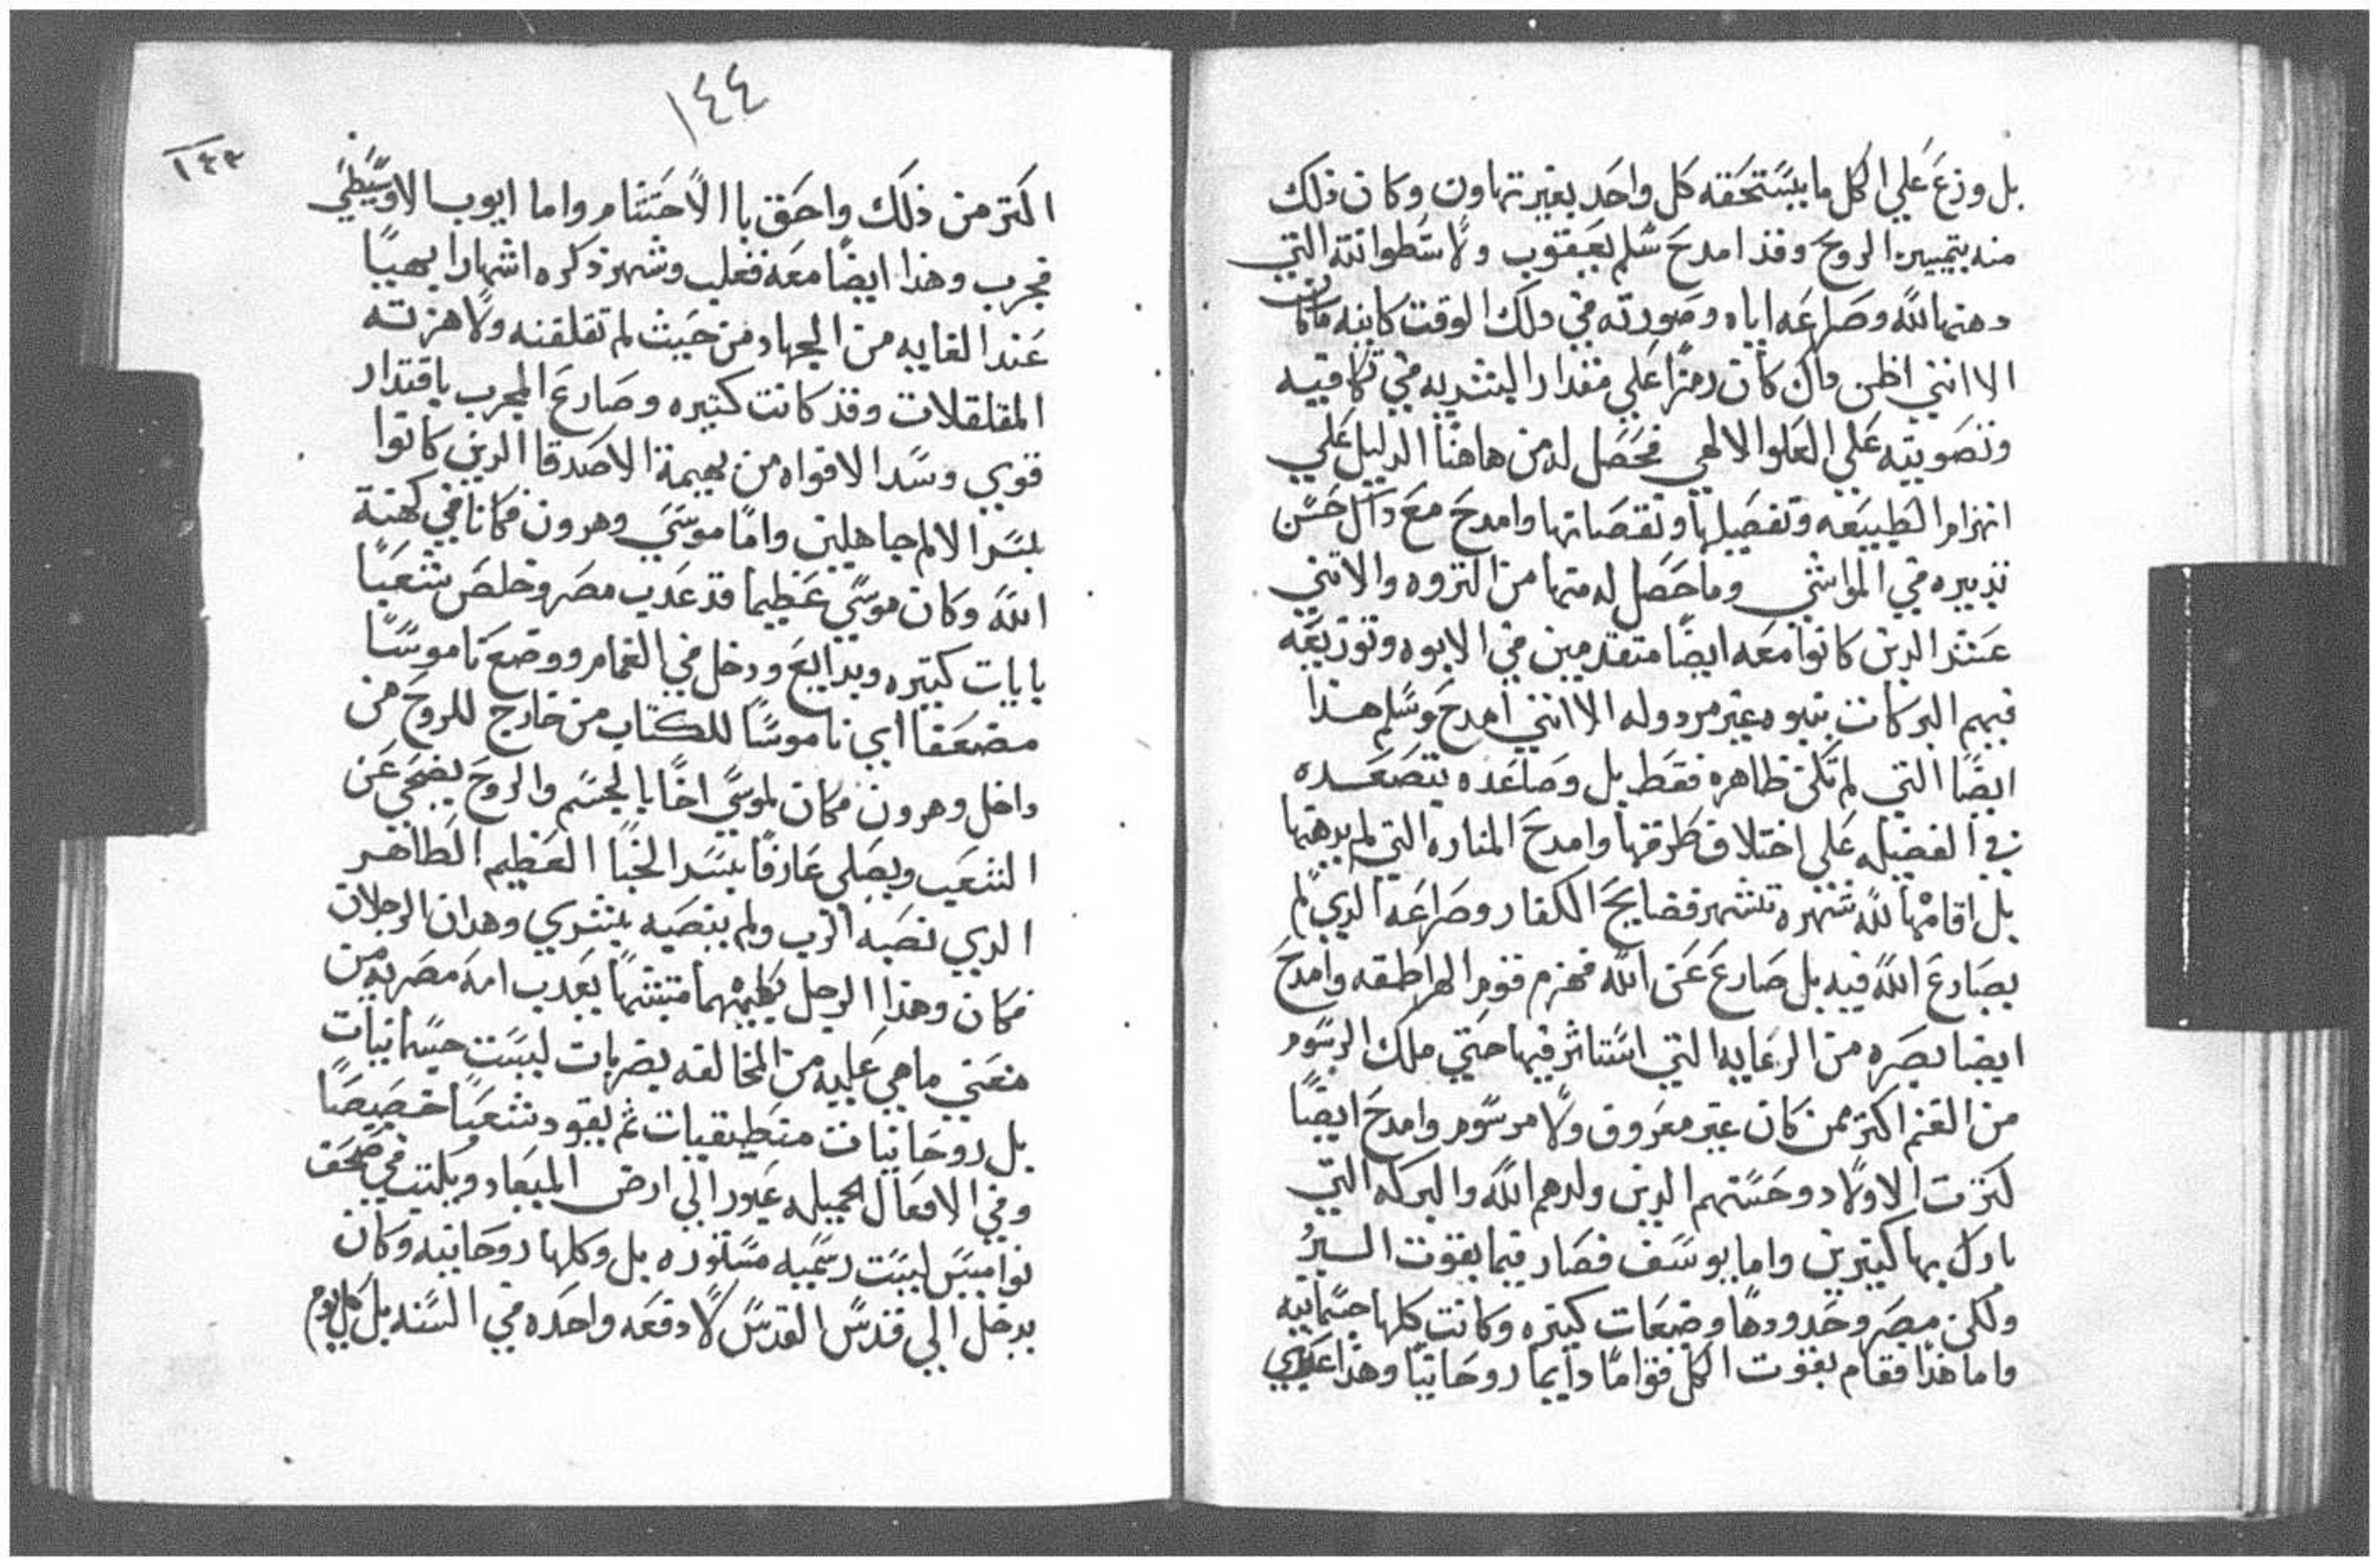 بل وزع علي الكل ما يستحقه كل واحد بغير تهاون وكان ذلك
منه بتمييز الروح وقد امدح سلم يعقوب ولاسطوانته التي
دهنها لله وصراعه اياه وصورته في دلك الوقت كاينه ماكانت
الا انني اظن داك كان رمزا علي مقدار البشريه في تكافييه
وتصويته علي العلو الالهي فحصل له من هاهنا الدليل علي
انهزام الطبيعه وتفصيلها ونقصانها وامدح مع داك حسن
تدبيره في المواشي وما حصل له منها من التروه والاتني
عشر الدين كانوا معه ايضا متقدمين في الابوه وتوزيعه
فيهم البركات بنبوه غير مردوله الا انني امدح وسلم هذا
ايضا التي لم تكن ظاهره فقط بل وصاعده يتصعده
في الفضيله علي اختلاف طرقها وامدح المناره التي لم يدهنها
بل اقامها لله شهره تشهر فضايح الكفار وصراعه الدي لم
يصارع الله فيه بل صارع عن الله فهزم قوم الهراطقه وامدح
ايضا بصره من الرعايه التي استاثر فيها حتي ملك الرسوم
من الغنم اكتر ممن كان غير معروف ولا مرسوم وامدح ايضا
كترت الاولاد وحسنهم الدين ولدهم الله والبركه التي
بارك بها كتيرين واما يوسف فصار قيما بقوت السير
ولكن مصر وحدودها وضعات كتيره وكانت كلها جسمانيه
واما هذا فقام بقوت الكل قواما دايما روحانيا وهذا عندي
١٤٤
١٤٣
اكتر من ذلك واحق با الاحتشام واما ايوب الاوسيطي
فجرب وهذا ايضا معه فغلب وشهر ذكره اشهارا بهيا
عند الغايه من الجهاد من حيث لم تقلقنه ولا هزته
المقلقلات وقد كانت كتيره وصارع المجرب باقتدار
قوي وسد الافواه من بهيمة الاصدقا الدين كانوا
بسر الالم جاهلين واما موسي وهرون فكانا في كهنة
الله وكان موسي عظيما قد عدب مصر وخلص شعبا
بايات كتيره وبدايع ودخل في الغمام ووضع ناموسا
مضعفا اي ناموسا للكتاب من خارج للروح من
داخل وهرون فكان لموسي اخا بالجسم والروح يضحي عن
الشعب ويصلي عارفا بسر الخبا العظيم الطاهر
الدي نصبه الرب ولم ينصبه بشري وهدان الرجلان
فكان وهذا الرجل بكليهما متشبها بعدب امه مصريه من
معني ما هي عليه من المخالفه بضربات ليست جسمانيات
بل روحانيات منطيقيات ثم يقود شعبا خصيصا
وفي الافعال الجميله غيورا الي ارض الميعاد ويكتب في صحف
نواميس ليست رسميه مستوره بل وكلها روحانيه وكان
يدخل الي قدس القدس لا دفعه واحده في السنه بل كل يوم